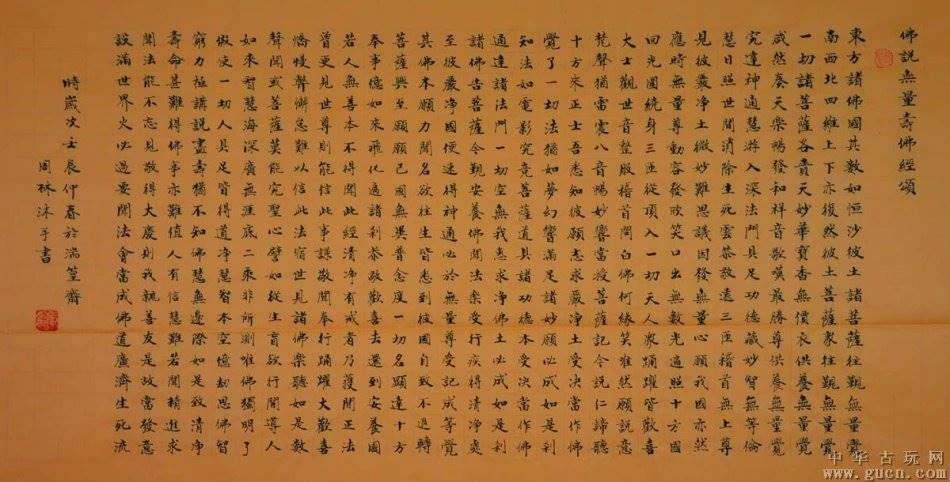 佛説無量壽佛經頌
東方諸佛國其數如恒沙彼土諸菩薩往覲無量覺
南西北四維上下亦復然彼土菩薩衆往覲無量覺
一切諸菩薩各賫天妙華寶香無價衣供養無量覺
咸然奏天樂暢發和雅音歌嘆最勝尊供養無量覺
究達神通慧遊入深法門具足功德藏妙智無等倫
慧日照世間消除生死雲恭敬遶三匝稽首無上尊
見彼嚴淨土微妙難思議因發無量心願我國亦然
應時無量尊動容發欣笑口出無數光遍照十方國
回光圍繞身三匝從頂入一切天人衆踊躍皆歡喜
大士觀世音整服稽首問白佛何緣笑唯然願説意
梵聲猶雷震八音暢妙響當授菩薩記今説仁諦聽
十方來正士吾悉知彼願志求嚴淨土受決當作佛
覺了一切法猶如夢幻響滿足諸妙願必成如是刹
知法如電影究竟菩薩道具諸功德本受決當作佛
通達諸法門一切空無我專求淨佛土必成如是刹
諸佛告菩薩令覲安養佛聞法樂受行疾得清淨處
至彼嚴淨國便速得神通必於無量尊受記成等覺
其佛本願力聞名欲往生皆悉到彼國自致不退轉
菩薩興至願願己國無異普念度一切名顯達十方
奉事億如來飛化遍諸刹恭敬歡喜去還到安養國
若人無善本不得聞此經清淨有戒者乃獲聞正法
曾更見世尊則能信此事謙敬聞奉行踊躍大歡喜
憍慢弊懈怠難以信此法宿世見諸佛樂聽如是教
聲聞或菩薩莫能究聖心譬如從生盲欲行開導人
如來智慧海深廣無涯底二乘非所測唯佛獨明了
假使一切人具足皆得道淨慧智本空億劫思佛智
窮力極講説盡壽猶不知佛慧無邊際如是致清淨
壽命甚難得佛事亦難值人有信慧難若聞精進求
聞法能不忘見敬得大慶則我親善友是故當發意
設滿世界火必過要聞法會當成佛道廣濟生死流
時歲次壬辰仲春於瑞篁齋
周林沐手書
中华古玩网
www.gucn.com